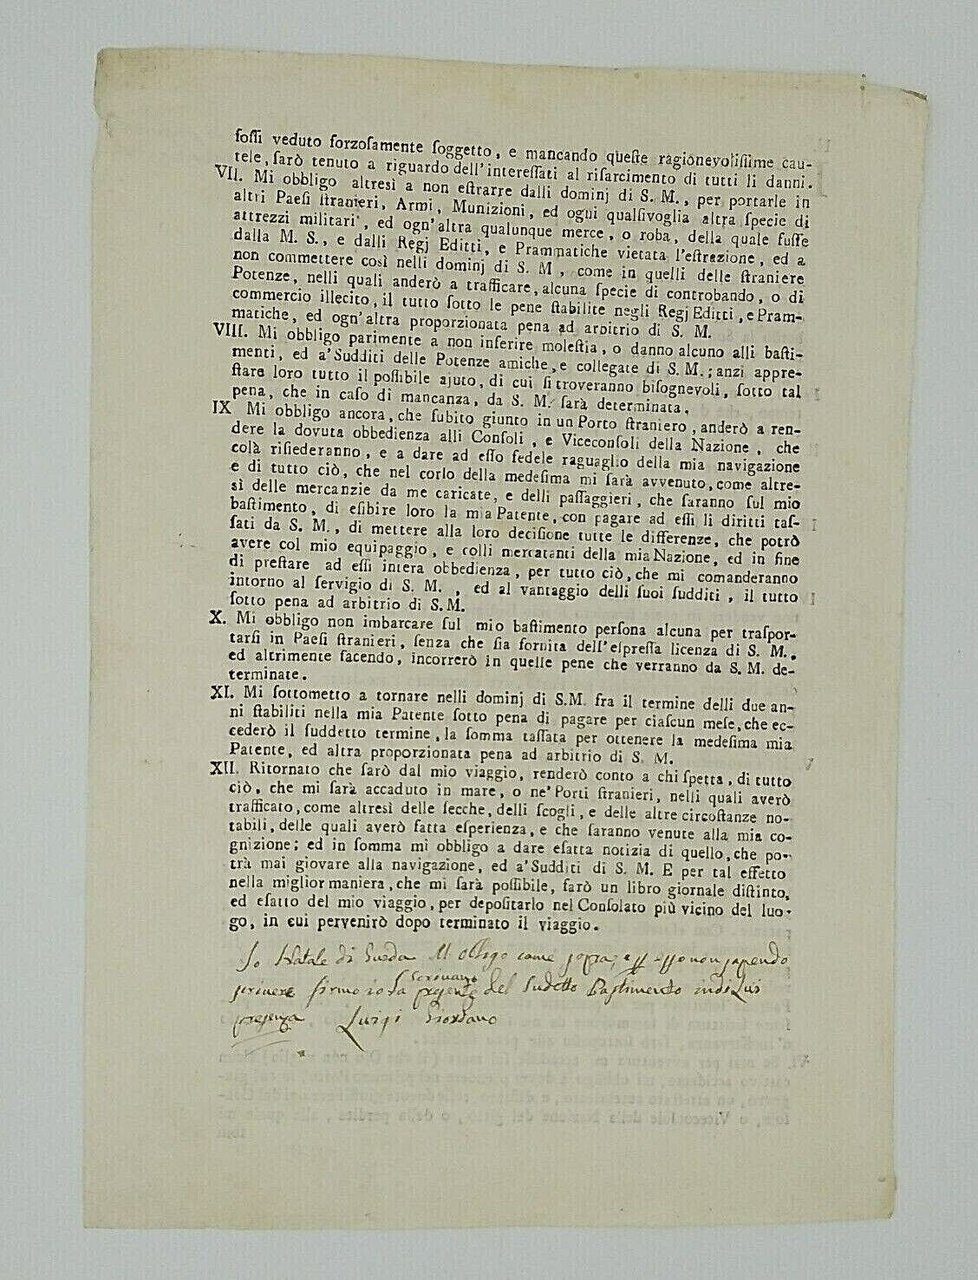 foſſi veduto forzoſamente ſoggetto, e mancando queſte ragionevoliſſime cau-
tele, ſarò tenuto a riguardo dell'intereſſati al riſarcimento di tutti li danni.
VII. Mi obbligo altresì a non eſtrarre dalli dominj di S. M., per portarle in
altri Paeſi ſtranieri, Armi, Munizioni, ed ogni qualſivoglia altra ſpecie di
attrezzi militari, ed ogn'altra qualunque merce, o roba, della quale fuſſe
dalla M. S., e dalli Regj Editti, e Prammatiche vietata l'eſtrazione, ed a
non commettere così nelli dominj di S. M, come in quelli delle ſtraniere
Potenze, nelli quali anderò a trafficare, alcuna ſpecie di controbando, o di
commercio illecito, il tutto ſotto le pene ſtabilite negli Regj Editti, e Pram-
matiche, ed ogn'altra proporzionata pena ad arbitrio di S. M.
VIII. Mi obbligo parimente a non inferire moleſtia, o danno alcuno alli baſti-
menti, ed a'Sudditi delle Potenze amiche, e collegate di S. M.; anzi appre-
ſtare loro tutto il poſſibile ajuto, di cui ſi troveranno biſognevoli, ſotto tal
pena, che in caſo di mancanza, da S. M. ſarà determinata.
IX Mi obbligo ancora, che ſubito giunto in un Porto ſtraniero, anderò a ren-
dere la dovuta obbedienza alli Conſoli, e Viceconſoli della Nazione, che
colà riſiederanno, e a dare ad eſſo fedele raguaglio della mia navigazione
e di tutto ciò, che nel corſo della medeſima mi ſarà avvenuto, come altre-
sì delle mercanzie da me caricate, e delli paſſaggieri, che ſaranno ſul mio
baſtimento, di eſibire loro la mia Patente, con pagare ad eſſi li diritti taſ-
ſati da S. M., di mettere alla loro deciſione tutte le differenze, che potrò
avere col mio equipaggio, e colli mercatanti della mia Nazione, ed in fine
di preſtare ad eſſi intera obbedienza, per tutto ciò, che mi comanderanno
intorno al ſervigio di S. M., ed al vantaggio delli ſuoi ſudditi, il tutto
ſotto pena ad arbitrio di S.M.
X. Mi obbligo non imbarcare ſul mio baſtimento perſona alcuna per traſpor-
tarſi in Paeſi ſtranieri, ſenza che ſia fornita dell'eſpreſſa licenza di S. M.,
ed altrimente facendo, incorrerò in quelle pene che verranno da S. M. de-
terminate.
XI. Mi ſottometto a tornare nelli dominj di S.M. fra il termine delli due an-
ni ſtabiliti nella mia Patente ſotto pena di pagare per ciaſcun meſe, che ec-
cederò il ſuddetto termine, la ſomma taſſata per ottenere la medeſima mia
Patente, ed altra proporzionata pena ad arbitrio di S. M.
XII. Ritornato che ſarò dal mio viaggio, renderò conto a chi ſpetta, di tutto
ciò, che mi ſarà accaduto in mare, o ne'Porti ſtranieri, nelli quali averò
trafficato, come altresì delle ſecche, delli ſcogli, e delle altre circoſtanze no-
tabili, delle quali averò fatta eſperienza, e che ſaranno venute alla mia co-
gnizione; ed in ſomma mi obbligo a dare eſatta notizia di quello, che po-
trà mai giovare alla navigazione, ed a'Sudditi di S. M. E per tal effetto
nella miglior maniera, che mi ſarà poſſibile, farò un libro giornale diſtinto,
ed eſatto del mio viaggio, per depoſitarlo nel Conſolato più vicino del luo-
go, in cui pervenirò dopo terminato il viaggio.
Io Natale di M'obligo come sopra, non sapendo
scrivere firmo io Scrivano del sudetto Bastimento
presenza Luigi Giordano